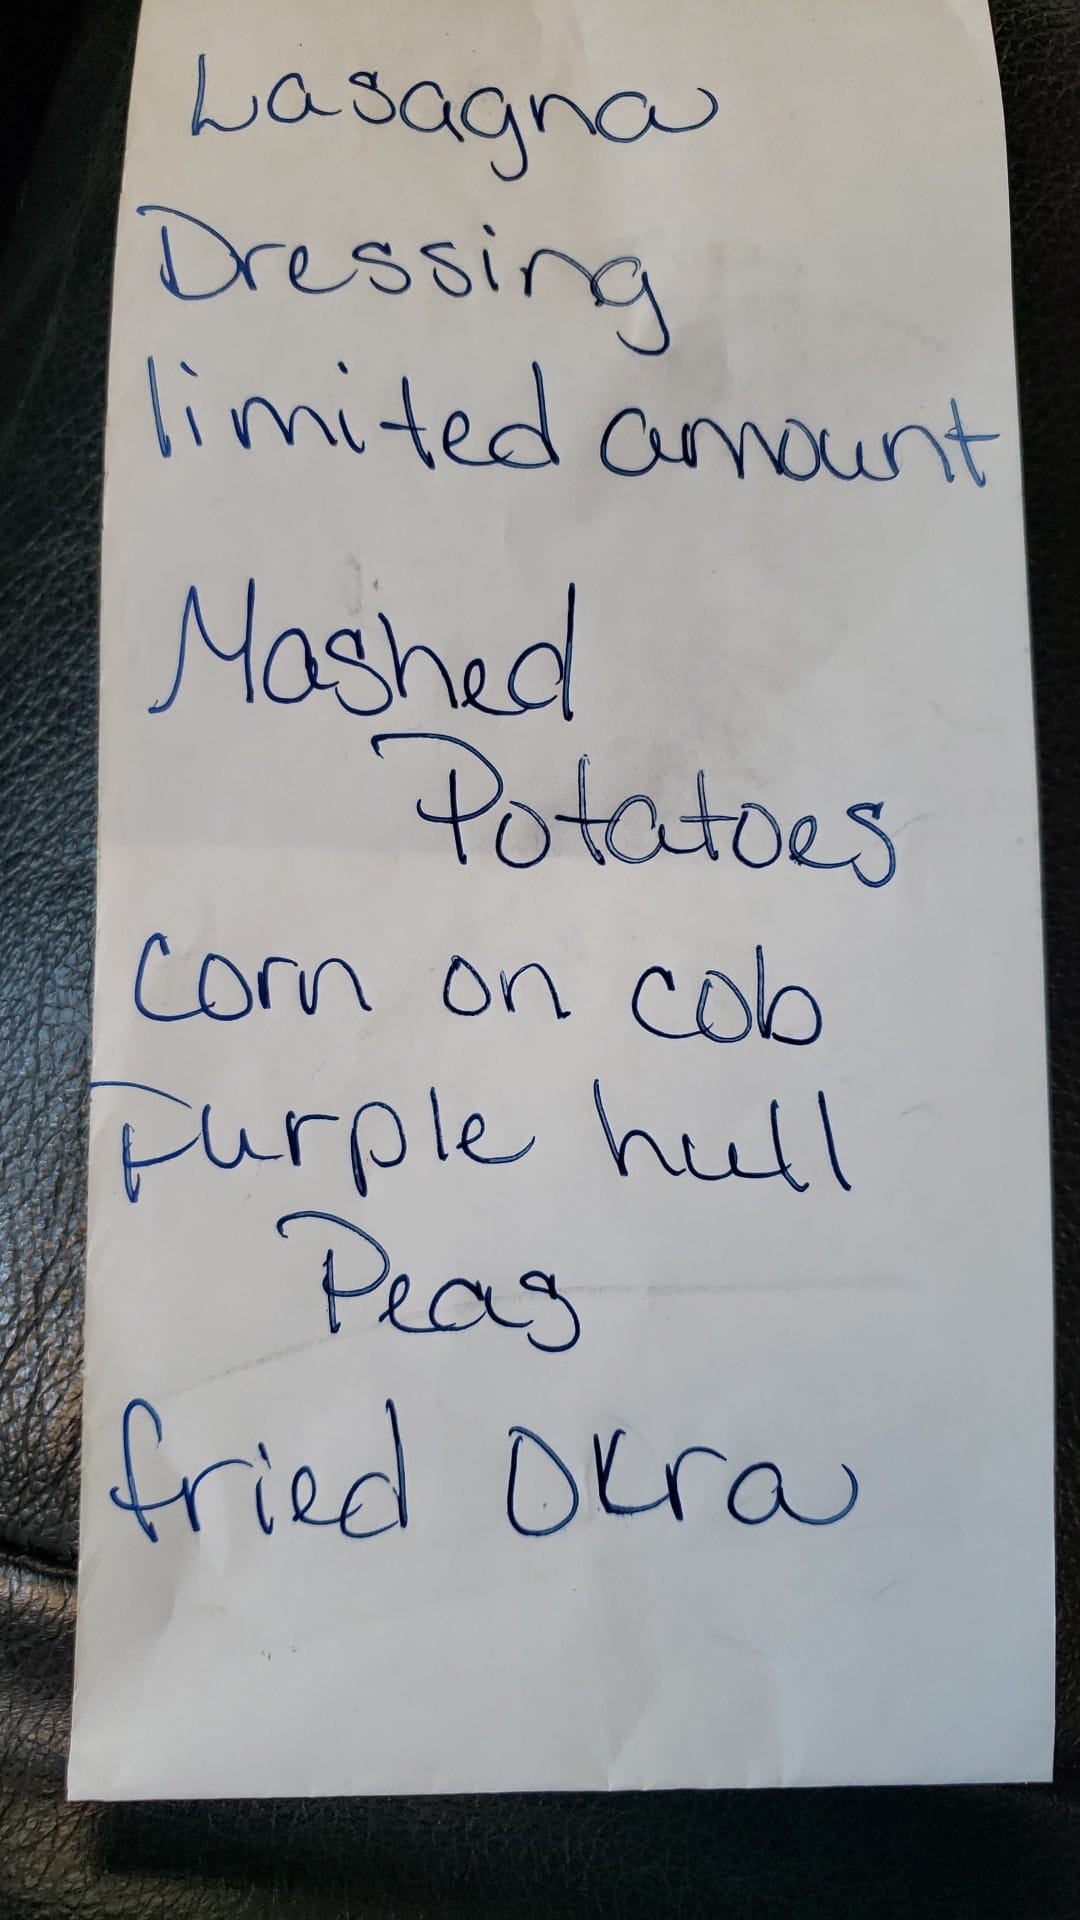 Lasagna
Dressing
limited amount
Mashed
Potatoes
Corn on cob
Purple hull
Peas
fried Okra